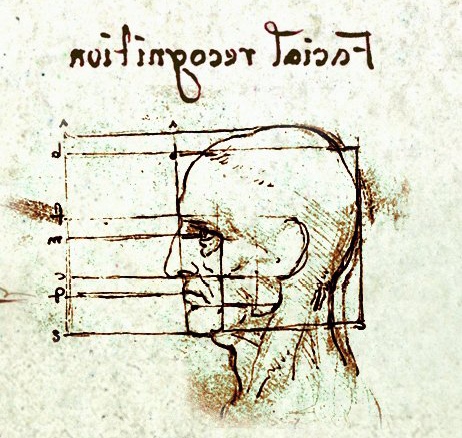 Facial recognition
d
m
v
p
s